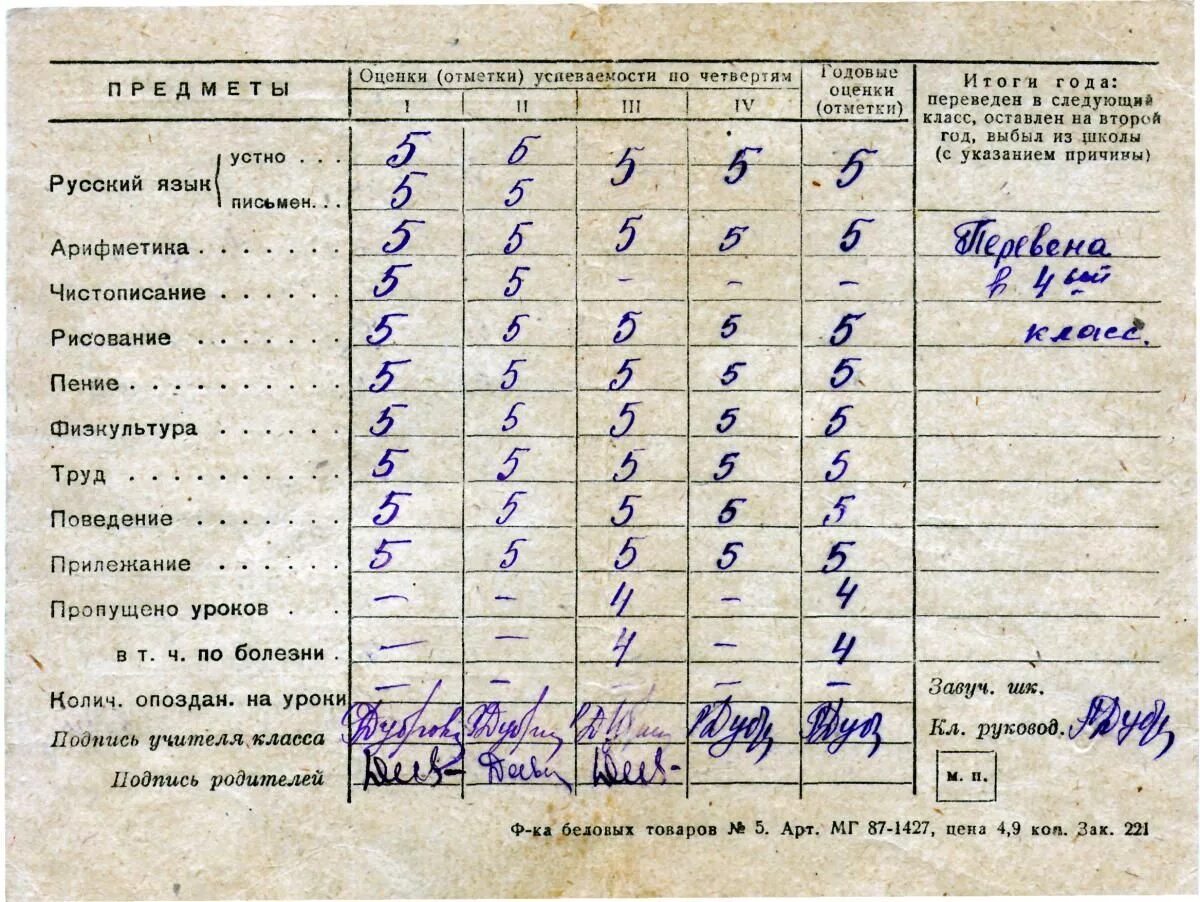 ПРЕДМЕТЫ Оценки (отметки) успеваемости по четвертям Годовые оценки (отметки) Итоги года:
I II III IV переведен в следующий
класс, оставлен на второй
год, выбыл из школы
(с указанием причины)
Русский язык устно . . . 5 5 5 5 5
письмен. . . 5 5
Арифметика . . . . . . . 5 5 5 5 5 Переведена
Чистописание . . . . . . 5 5 – – – в 4 ый
Рисование . . . . . . . 5 5 5 5 5 класс.
Пение . . . . . . . . . . 5 5 5 5 5
Физкультура . . . . . . 5 5 5 5 5
Труд . . . . . . . . . . 5 5 5 5 5
Поведение . . . . . . . 5 5 5 5 5
Прилежание . . . . . . 5 5 5 5 5
Пропущено уроков . . – – 4 – 4
в т. ч. по болезни . – – 4 – 4
Колич. опоздан. на уроки – – – – – Завуч. шк.
Подпись учителя класса Кл. руковод.
Подпись родителей м. п.
Ф-ка беловых товаров № 5. Арт. МГ 87-1427, цена 4,9 коп. Зак. 221